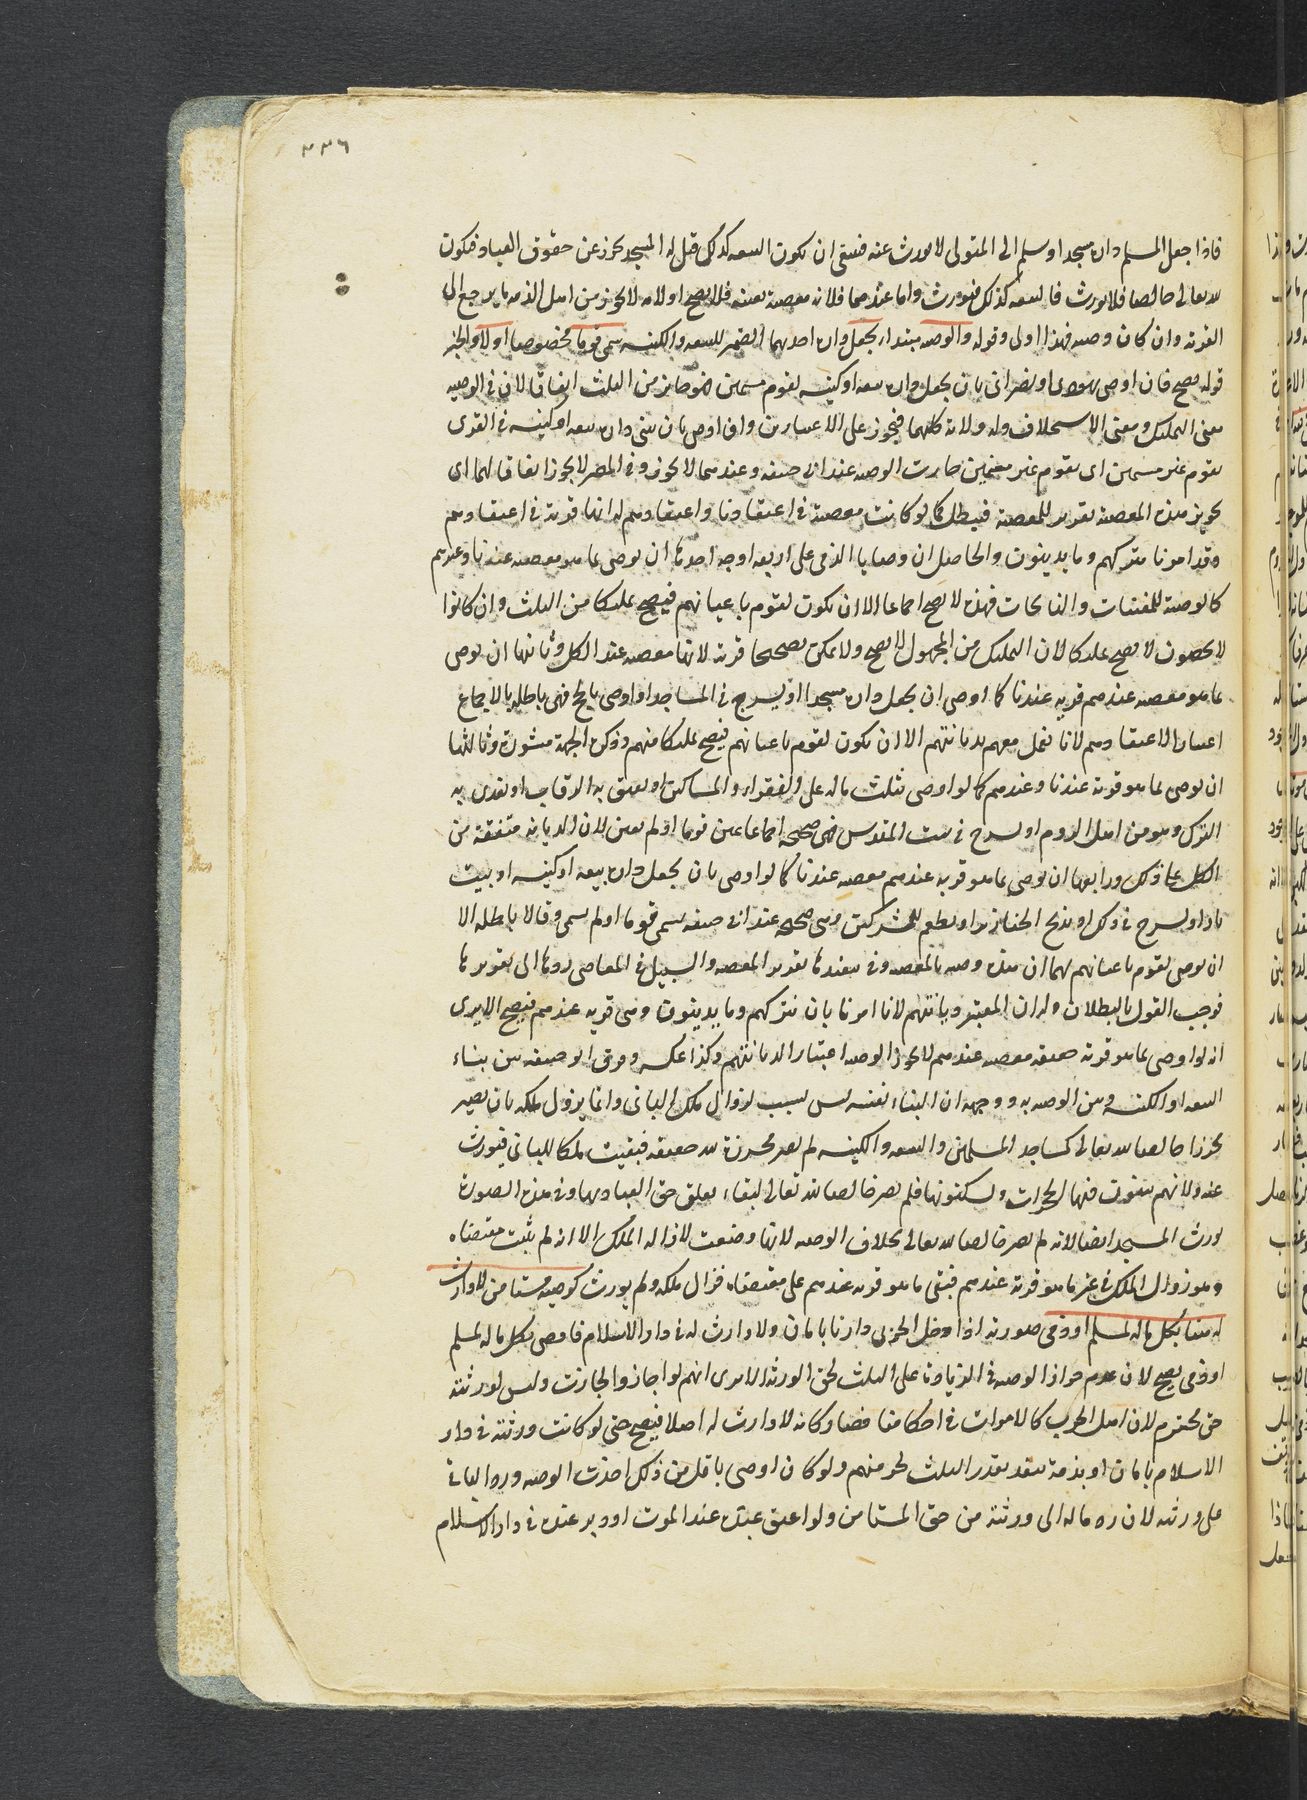 ٣٣٦
فاذا جعل المسلم داره مسجدا وسلم الى المتولى لا يورث عنه فينبغى ان يكون البيعه كذلك قيل له المسجد محرز عن حقوق العباد فيكون
لله تعالى خالصا فلا يورث فالبيعه كذلك فيورث واما عندهما فلانه معصية فلا يصح اولا
القربة وان كان وصيه فهذا اولى وقوله والوصيه مبتداء يجعل داره احدهما الضمير للبيعه والكنيسه سمى قوما مخصوصا اولا والخبر
قوله يصح فان اوصى يهودى او نصرانى بان يجعل داره بيعه او كنيسه لقوم مسمين فهو جايز من الثلث اتفاقا لان فى الوصيه
معنى التمليك ومعنى الاستخلاف وله ولاية كليهما فيجوز على الاعتبارين وان اوصى بان يبنى داره بيعه او كنيسه فى القرى
لقوم غير مسمين اى لقوم غير معينين جازت الوصيه عند ابى حنيفه وعندهما لا يجوز وفى المصر لا يجوز اتفاقا لهما اى
تجويز هذه المعصيه تقرير للمعصية فيبطل كما لو كانت معصية فى اعتقادنا واعتقادهم له انها قربة فى اعتقادهم
وقد امرنا بتركهم وما يدينون والحاصل ان وصايا الذمى على اربعه اوجه احدها ان يوصى بما هو معصيه عندنا وعندهم
كالوصية للمغنيات والنايحات فهذه لا يصح اجماعا الا ان يكون لقوم باعيانهم فيصح تمليكا من الثلث وان كانوا
لا يحصون لا يصح تمليكا لان التمليك من المجهول لا يصح ولا يمكن تصحيحها قربة لانها معصيه عند الكل وثانيها ان يوصى
بما هو معصيه عندهم قربه عندنا كما اوصى ان يجعل داره مسجدا او يسرج فى المساجد او اوصى بالحج فهى باطله بالاجماع
اعتبارا لاعتقادهم لانا نعمل معهم بديانتهم الا ان يكون لقوم باعيانهم فيصح تمليكا منهم وذكر الجهة مشورة وثالثها
ان يوصى بما هو قربة عندنا وعندهم كما لو اوصى بثلث ماله على الفقراء والمساكين او يعتق به الرقاب او يغزى به
الترك وهو من اهل الروم او يسرج فى بيت المقدس فهى صحيحه اجماعا عين قوما او لم يعين لان الديانه متفقة من
الكل على ذلك ورابعها ان يوصى بما هو قربه عندهم معصيه عندنا كما لو اوصى بان يجعل داره بيعه او كنيسه او بيت
نار او يسرج فى ذلك او يذبح الخنازير او يطعم للمشركين وهى صحيحه عند ابى حنيفه يسمى قوما او لم يسمى وقالا باطله الا
ان يوصى لقوم باعيانهم لهما ان هذه وصيه بالمعصيه وفى تنفيذها تقرير المعصيه والسبيل فى المعاصى ردها الى تقريرها
فوجب القول بالبطلان وله ان المعتبر ديانتهم لانا امرنا بان نتركهم وما يدينون وهى قربه عندهم فيصح الا يرى
انه لو اوصى بما هو قربة حقيقه معصيه عندهم لا يجوز الوصيه اعتبارا لديانتهم وكذا عكسه وفرق ابو حنيفه بين بناء
البيعه او الكنيسه وبين الوصيه به ووجهه ان البناء نفسه ليس بسبب لزوال ملك البانى وانما يزول ملكه بان يصير
محرزا خالصا لله تعالى كمساجد المسلمين والبيعه والكنيسه لم تصر محرزة لله حقيقه فبقيت ملكا للبانى فيورث
عنه ولانهم يبنون فيها الحجرات ويسكنونها فلم يصر خالصا لله تعالى لبقاء تعلق حق العباد بها وفى هذه الصورة
يورث المسجد ايضا لانه لم يصر خالصا لله تعالى بخلاف الوصيه لانها وضعت لازالة الملك الا انه لم يثبت مقتضاه
وهو زوال الملك فى غير ما هو قربة عندهم فبقى ما هو قربه عندهم على مقتضاه فزال ملكه ولم يورث كوصيه مستامن لا وارث
له هنا بكل ماله لمسلم او ذمى صورته اذا دخل الحربى دارنا بامان ولا وارث له فى دار الاسلام فاوصى بكل ماله لمسلم
او ذمى يصح لان عدم جواز الوصيه فى الزيادة على الثلث لحق الورثه الا يرى انهم لو اجازوا لجازت وليس لورثته
حق محترم لان اهل الحرب كالاموات فى احكامنا فصار كانه لا وارث له اصلا فيصح حتى لو كانت ورثته فى دار
الاسلام بامان او بذمة ينفذ بقدر الثلث لحق منهم ولو كان اوصى باقل من ذلك اخذت الوصيه ورد الباقى
على ورثته لان رد ماله الى ورثته من حق المستامن ولو اعتق عبده عند الموت او دبر عنده فى دار الاسلام